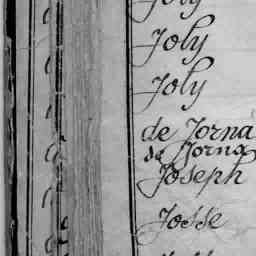 Joly
Joly
Joly
de Jorna
de Jorna
Joseph
Josse